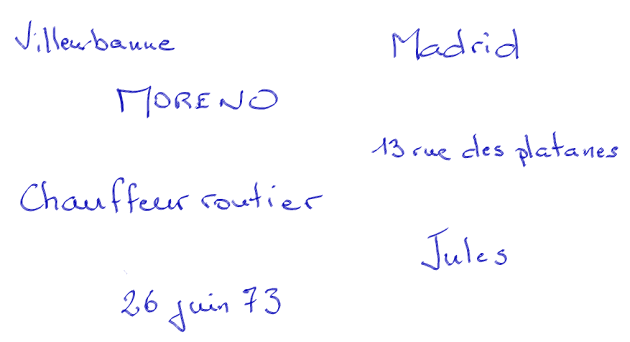 Villeurbanne
Madrid
MORENO
13 rue des platanes
Chauffeur routier
Jules
26 juin 73